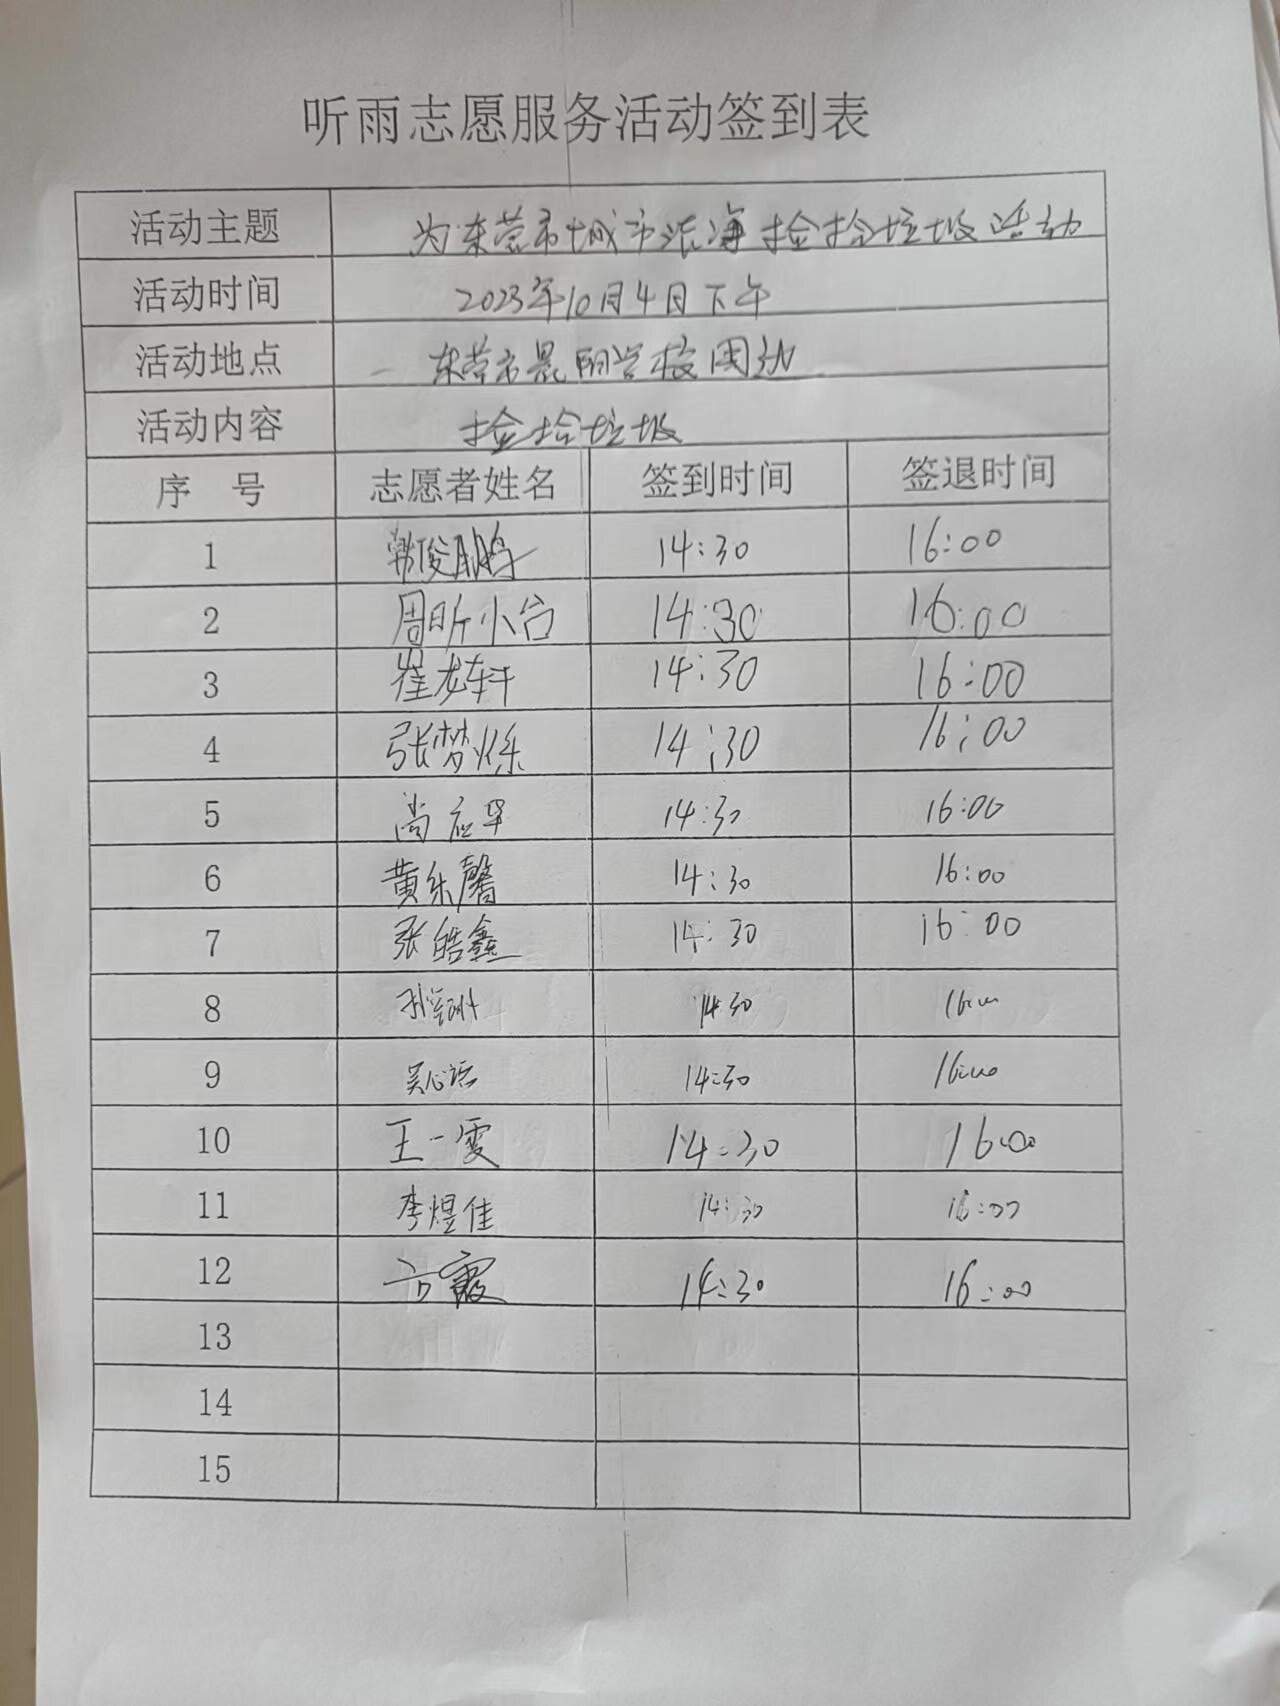 听雨志愿服务活动签到表
活动主题 为东莞市城市洁净捡拾垃圾活动
活动时间 2023年10月4日下午
活动地点 东莞市晨阳学校周边
活动内容 捡拾垃圾
序 号 志愿者姓名 签到时间 签退时间
1 韩俊鹏 14:30 16:00
2 周昕 14:30 16:00
3 崔龙轩 14:30 16:00
4 张梦烁 14:30 16:00
5 尚应华 14:30 16:00
6 黄乐馨 14:30 16:00
7 张皓鑫 14:30 16:00
8 14:30 16:00
9 吴心 14:30 16:00
10 王一雯 14:30 16:00
11 李煜佳 14:30 16:00
12 霞 14:30 16:00
13
14
15